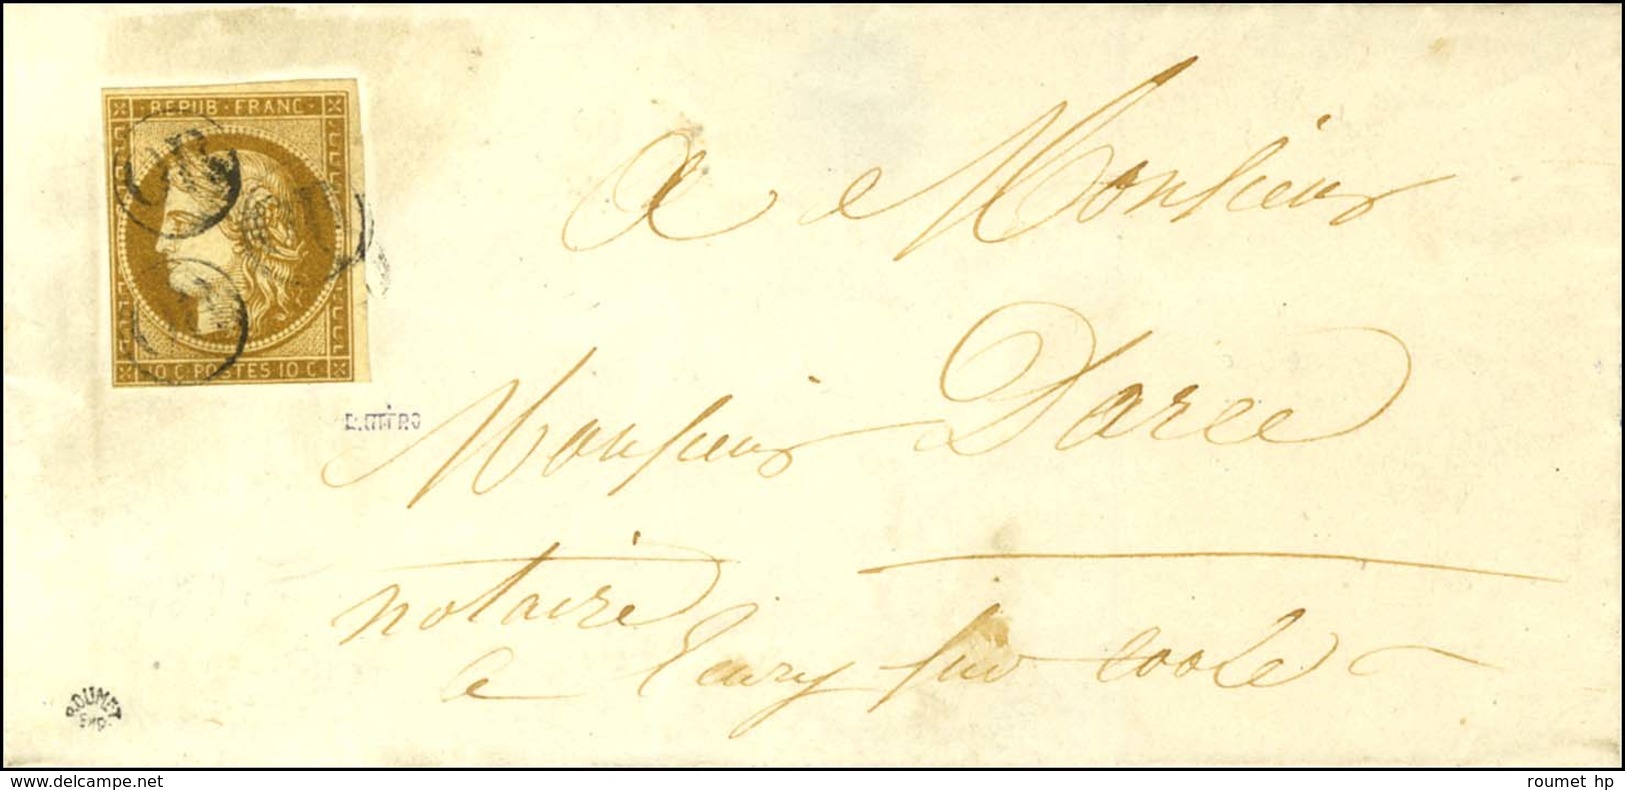 REPUB · FRANC ·
10 C · POSTES 10 C ·
A Monsieur
Monsieur Darce
notaire
a Ecury sur coole
ROUMET
EXP.
www.delcampe.net
roumet hp